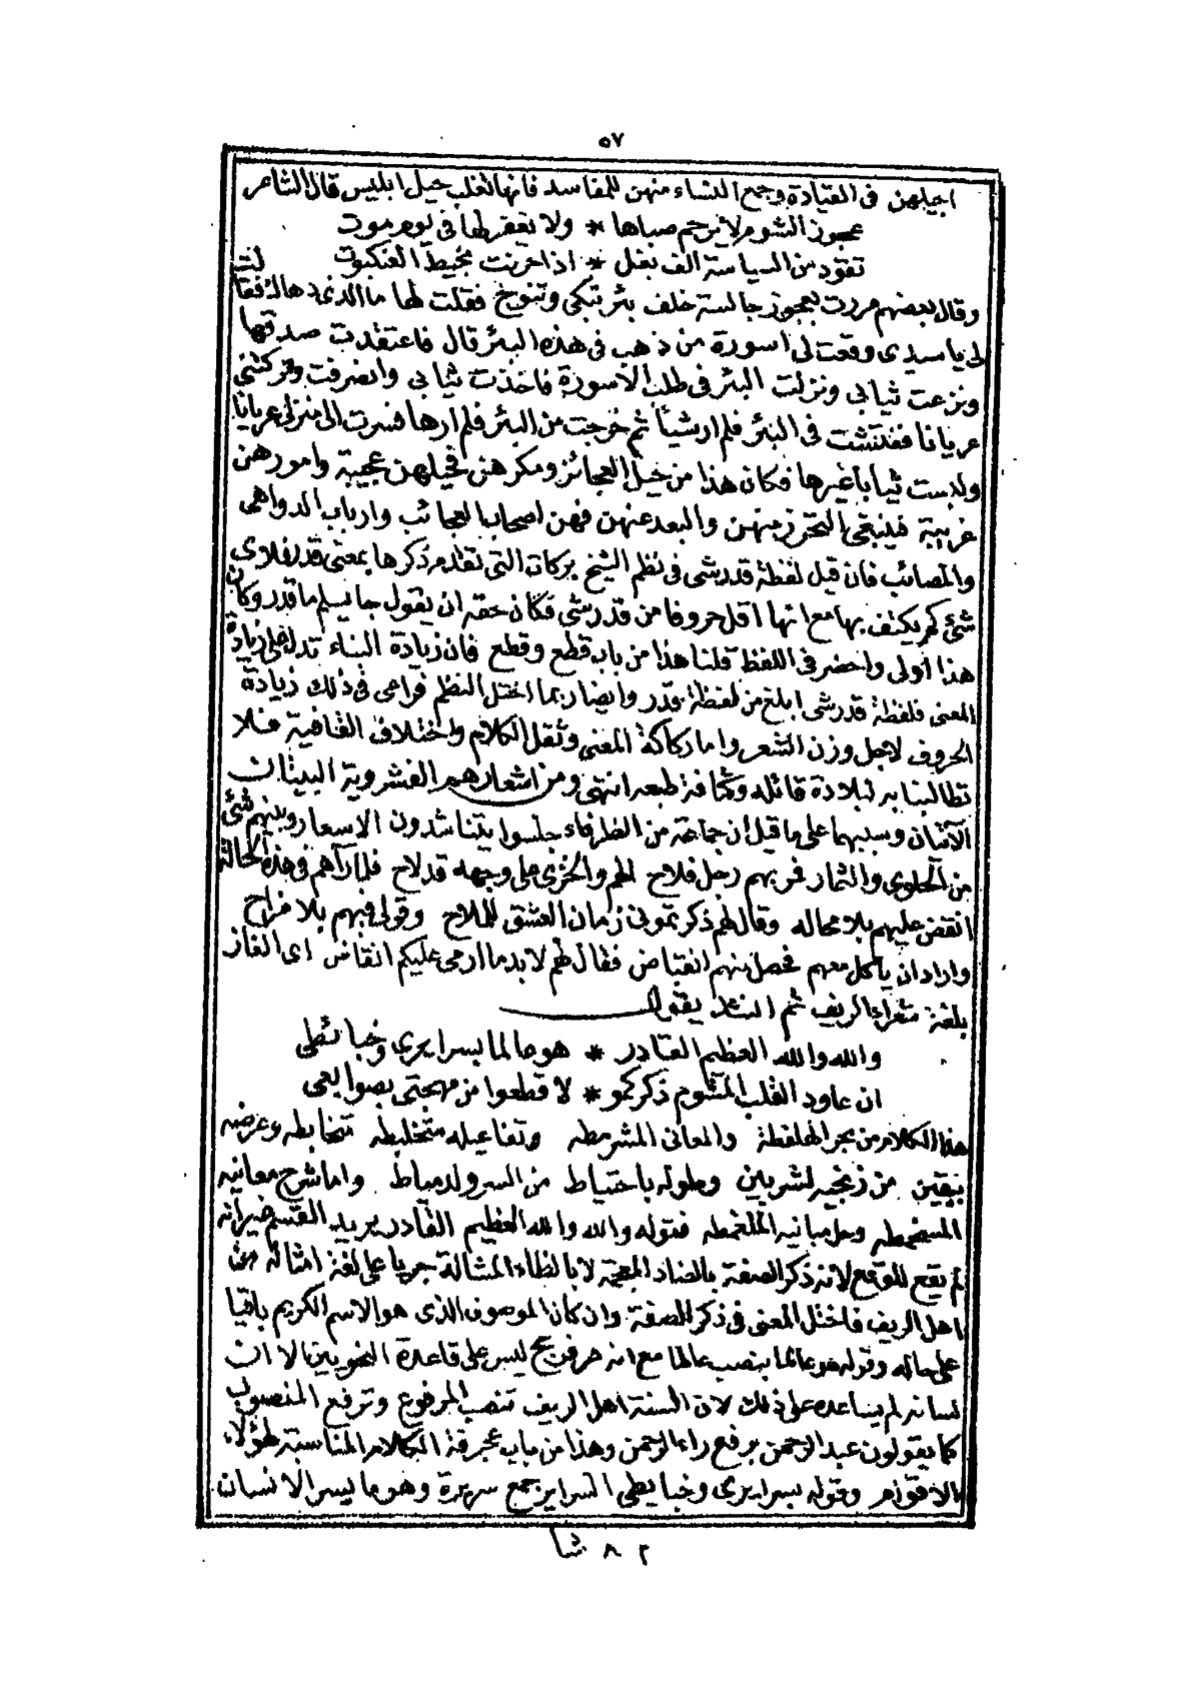 ٥٧
احيلهن فى القيادة وجمع النساء منهن للمفاسد فانها تغلب حيل ابليس قال الشاعر
عجوز الشوم لا يرحم صباها * ولا يغفر لها فى يوم موت
تقود من السياسة الف بغل * اذا حرنت بخيط العنكبوت
وقال بعضهم مررت بعجوز جالسة خلف بئر تبكى وتنوح فقلت لها ما الذى دهاك فقالت
لى يا سيدى وقعت لى اسورة من ذهب فى هذه البئر قال فاعتقدت صدقها
ونزعت ثيابى ونزلت البئر فى طلب الاسورة فاخذت ثيابى وانصرفت وتركتنى
عريانا ففتشت فى البئر فلم ار شيأ ثم خرجت من البئر فلم ارها فسرت الى منزلى عريانا
ولبست ثيابا غيرها فكان هذا من حيل العجائز ومكرهن فحيلهن عجيبة وامورهن
غريبة فينبغى التحرز منهن والبعد عنهن فهن اصحاب العجائب وارباب الدواهى
والمصائب فان قيل لفظة قدرشى فى نظم الشيخ بركات التى تقدم ذكرها بمعنى قدر فلاى
شئ لم يكتف بها مع انها اقل حروفا من قدرشى فكان حقه ان يقول جا نسلم ما قدر وكان
هذا اولى واخضر فى اللفظ قلنا هذا من باب قطع وقطع فان زيادة البناء تدل على زيادة
المعنى فلفظة قدرشى ابلغ من لفظة قدر وايضا ربما اختل النظم فراعى فى ذلك زيادة
الحروف لاجل وزن الشعر واما ركاكة المعنى وثقل الكلام واختلاف القافية فلا
تطالبنا به لبلادة قائله وكثافة طبعه انتهى ومن اشعارهم الفشروية البيتان
الآتيان وسببهما على ما قيل ان جماعة من الظرفاء جلسوا يتناشدون الاسعار وبينهم شئ
من الحلوى والثمار فمر بهم رجل فلاح الهم والخزى على وجهه قد لاح فلما رآهم فى هذه الحالة
انقض عليهم بلا محاله وقال لهم ذكرتمونى زمان العشق للملاح وقولى فيهم بلا مزاح
واراد ان ياكل معهم فحصل منهم انقباض فقال لهم لا بد ما ارمى عليكم انقاض اى الغاز
بلغة شعراء الريف ثم انشد يقول
والله والله العظيم القادر * هو عالما بسرايرى وخبائطى
ان عاود القلب المشوم ذكركمو * لا قطعوا من مهجتى بصوابعى
هذا الكلام من بحر الهلفطة والمعانى المشرمطه وتفاعيله متخلبطه متخابطه وعرضه
بيقين من زنجير لشربين وطوله باحتياط من السرو لدمياط واما شرح معانيه
المسقمطه وحل مبانيه الملغمطه فقوله والله والله العظيم القادر يريد القسم غير انه
لم يقع الموقع لانه ذكر الصفة بالضاد المعجمة لا بالظاء المشالة جريا على لغة امثاله من
اهل الريف فاختل المعنى فى ذكر الصفة وان كان الموصوف الذى هو الاسم الكريم باقيا
على حاله وقوله هو عالما بنصب عالما مع انه مرفوع ليس على قاعدة النحويين الا ان
لسانه لم يساعده على ذلك لان السنة اهل الريف تنصب المرفوع وترفع المنصوب
كما يقولون عبد الرحمن برفع راء الرحمن وهذا من باب عجرفة الكلام المناسبة لهؤلاء
الاقوام وقوله بسرايرى وخبايطى السراير جمع سريرة وهو ما يسر الانسان
٢ ٨ شا